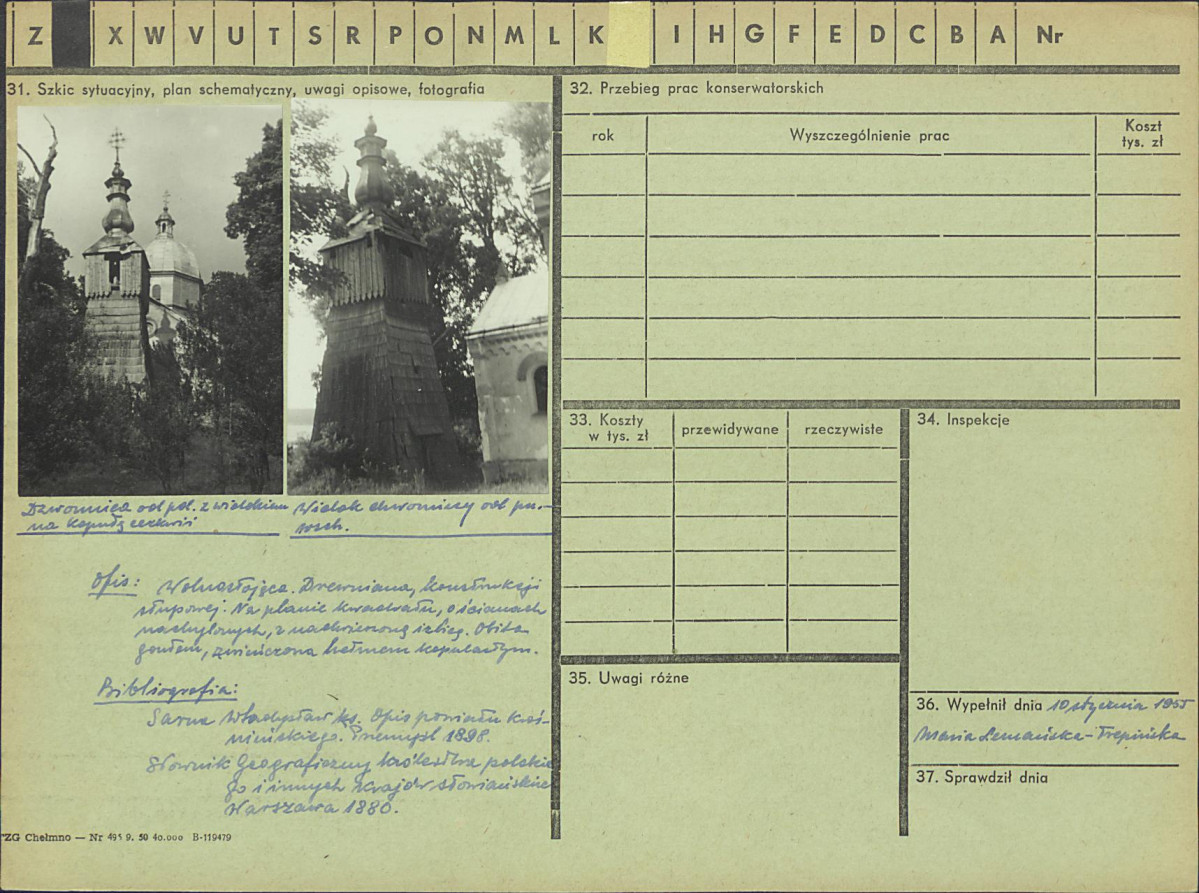 Z X W V U T S R P O N M L K I H G F E D C B A Nr
31. Szkic sytuacyjny, plan schematyczny, uwagi opisowe, fotografia
Dzwonnica od płd. z widokiem
na kopułę cerkwi
Widok dzwonnicy od pn.-
wsch.
Opis: Wolnostojąca. Drewniana, konstrukcji
słupowej. Na planie kwadratu, o ścianach
nachylonych, z nadwieszoną izbicą. Obita
gontem, zwieńczona hełmem kopulastym.
Bibliografia:
Sarna Władysław ks. Opis powiatu kroś-
nieńskiego. Przemyśl 1898.
Słownik Geograficzny królestwa polskie
go i innych krajów słowiańskich
Warszawa 1880.
TZG Chełmno — Nr 495 9. 50 40.000 B-119479
32. Przebieg prac konserwatorskich
rok Wyszczególnienie prac Koszt
tys. zł
33. Koszty
w tys. zł przewidywane rzeczywiste
34. Inspekcje
35. Uwagi różne
36. Wypełnił dnia 10 stycznia 1955
Maria Lemańska-Trepińska
37. Sprawdził dnia